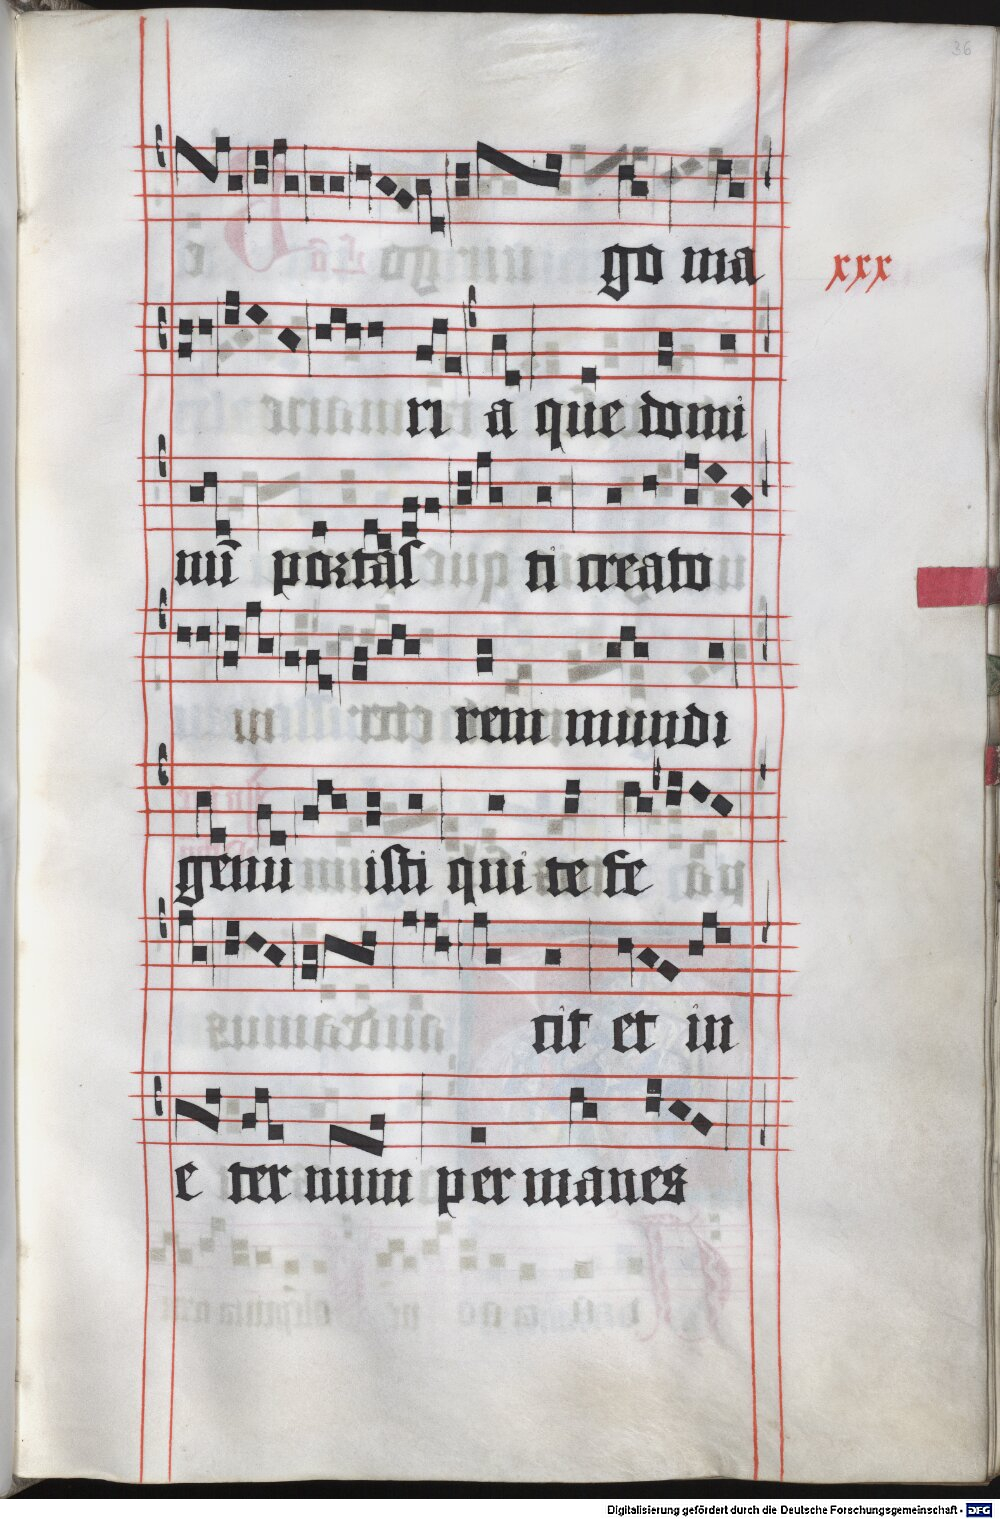 36
go ma
xxx
ri a que domi
nū portas ti creato
rem mundi
genu isti qui te fe
cit et in
e ter num per manes
Digitalisierung gefördert durch die Deutsche Forschungsgemeinschaft - DFG